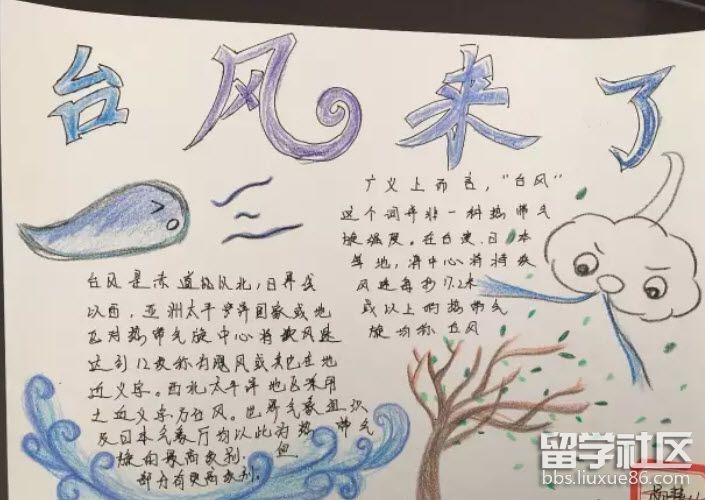 台风来了
广义上而言，“台风”
这个词并非一种热带气
旋强度。在台湾、日本
等地，将中心将持续
风速每秒17.2米
或以上的热带气
旋均称台风
台风是赤道以北，日界线
以西，亚洲太平洋国家或地
区对热带气旋中心将疾风速
达到12级称有飓风或其它在地
近义字。西北太平洋地区采用
之近义字乃台风。世界气象组织
及日本气象厅均以此为热带气
旋的最高级别，
部分有更高级别。
留学社区
bbs.liuxue86.com